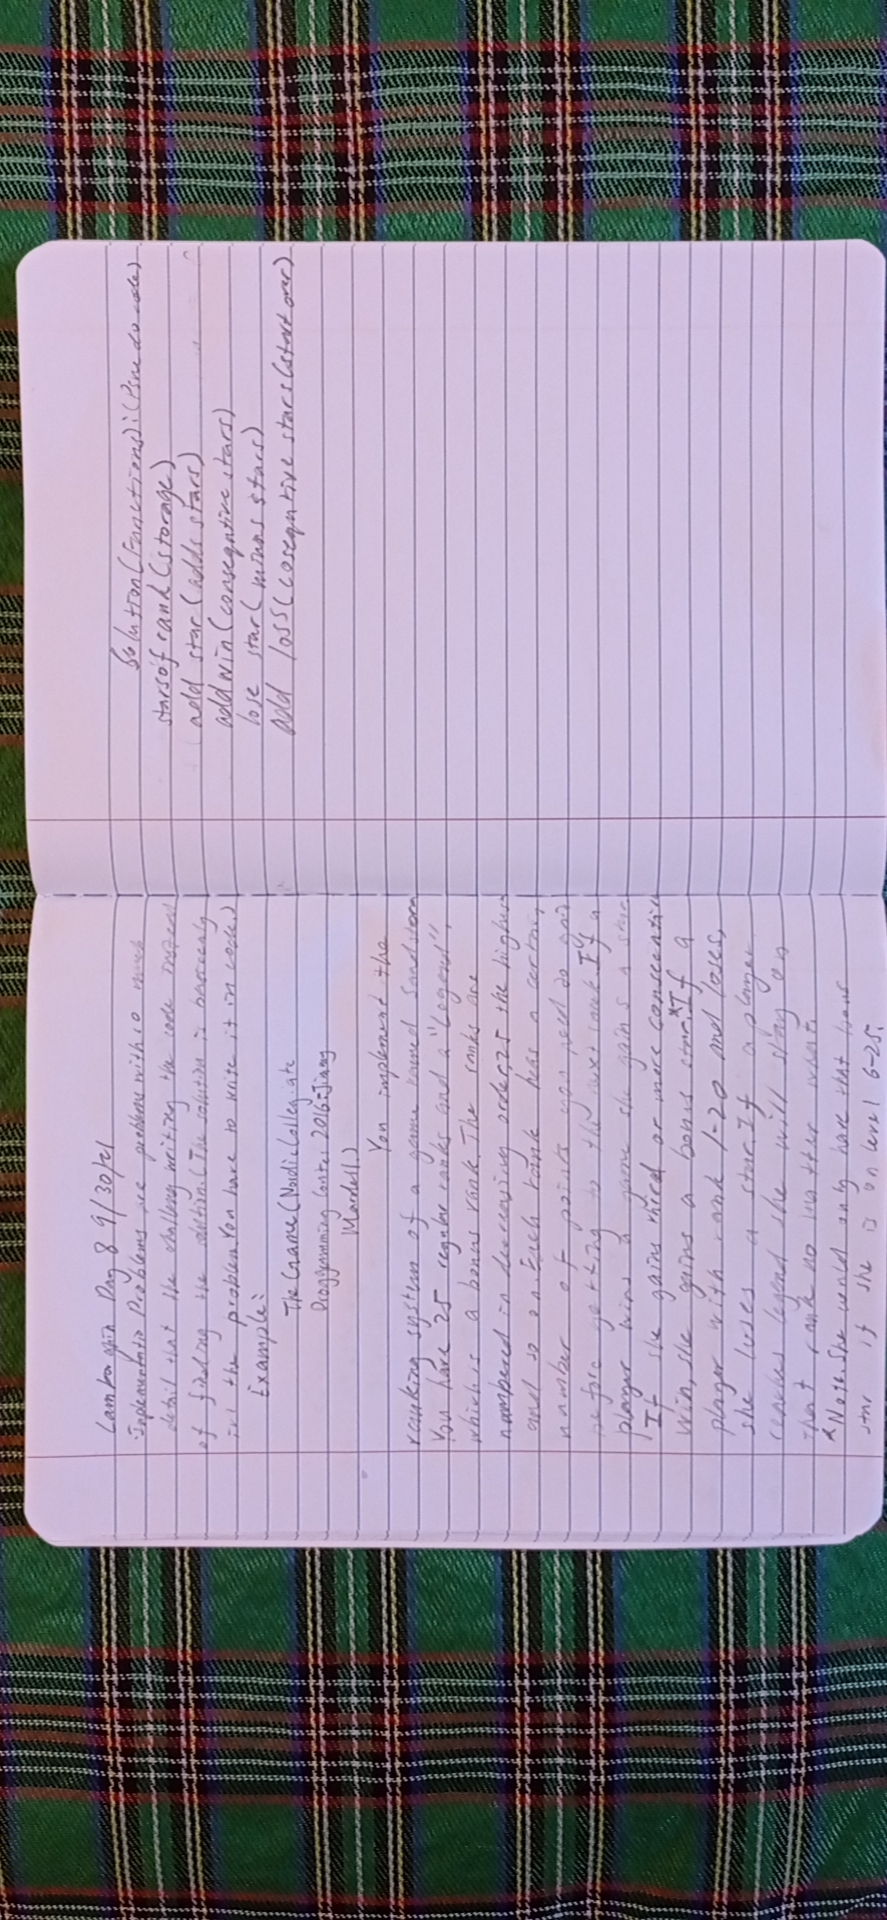 Lambaspin Day 8 9/30/21
Implementatio Problems are problems with so much
detail that the challeng writing the code instead
of finding the solution. (The solution is basically
just the problem. You have to write it in code.)
Example:
The Game (Nordic Collegiate
Proggramming Contes 2016: Jiang
Mardell)
You implement the
ranking system of a game named Sandstorm
You have 25 regular ranks and a "Legend",
which is a bonus rank. The ranks are
numbered in decreasing order, 25 the highest
and so on. Each rank has a certain
number of points you need to get
before getting to the next rank. If a
player wins a game she gains a star.
If she gains third or more consecutive
win, she gains a bonus star.* If a
player with rank 1-20 and loses,
she loses a star. If a player
reaches legend she will stay on
that rank no matter what.
*Note. She would only have that bonus
star if she is on level 6-25.
Solution (Functions): (Pseudo code)
starsofrank (storage)
add star (adds stars)
add win (consequtive stars)
lose star (minus stars)
add loss (cosequtive stars (start over)